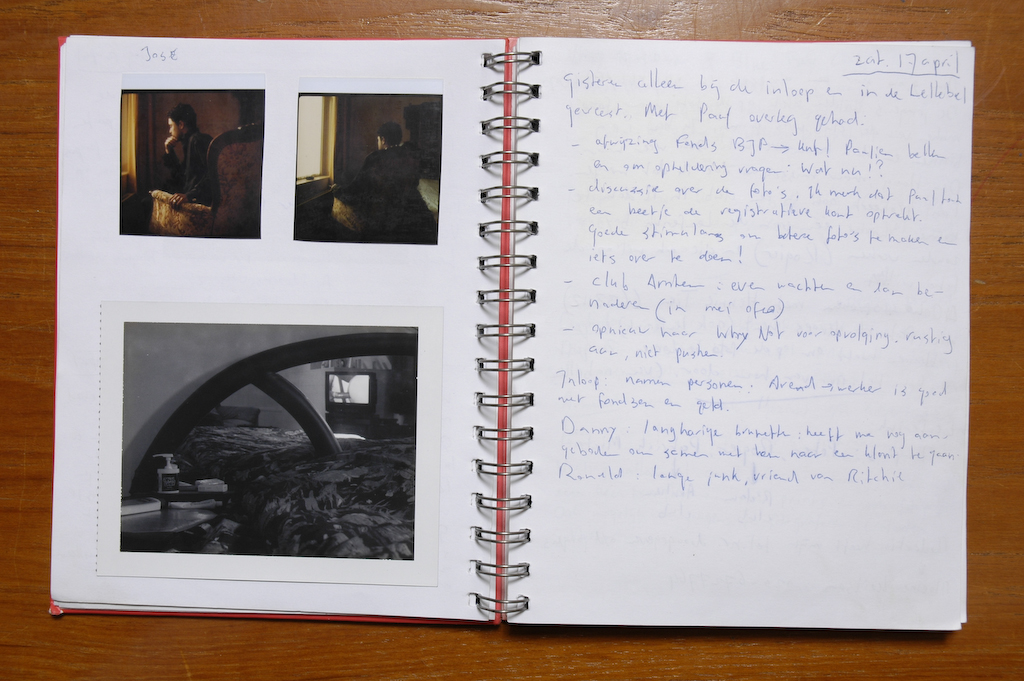 José
zat. 17 april
Gisteren alleen bij de inloop en in de Lellebel
geweest. Met Paul overleg gehad:
- afwijzing Fonds BJP → kut! Paulien bellen
en om opheldering vragen: wat nu!?
- discussie over de foto's. Ik merk dat Paul
een beetje de registratieve kant optrekt.
Goede stimulans om betere foto's te maken en
iets over te doen!
- club Arnhem: even wachten en dan be-
naderen (in mei ofzo)
- opnieuw naar Why Not voor opvolging. rustig
aan, niet pushen.
Inloop: namen personen. Arend → werker is goed
met fondsen en geld.
Danny: langharige brunette: heeft me nog aan-
geboden om samen met hem naar een klant te gaan.
Ronald: lange junk, vriend van Ritchie